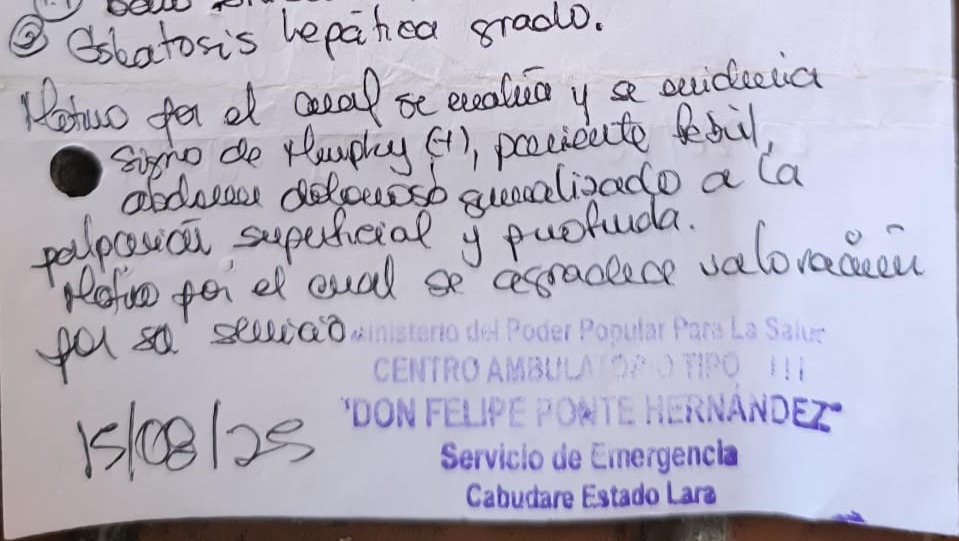 ② Esteatosis hepática grado.
Motivo por el cual se evalúa y se evidencia
signo de Murphy (+), paciente febril,
abdomen doloroso generalizado a la
palpación superficial y profunda.
Motivo por el cual se agradece valoración
por su servicio
Ministerio del Poder Popular Para La Salud
CENTRO AMBULATORIO TIPO III
"DON FELIPE PONTE HERNÁNDEZ"
Servicio de Emergencia
Cabudare Estado Lara
15/08/25